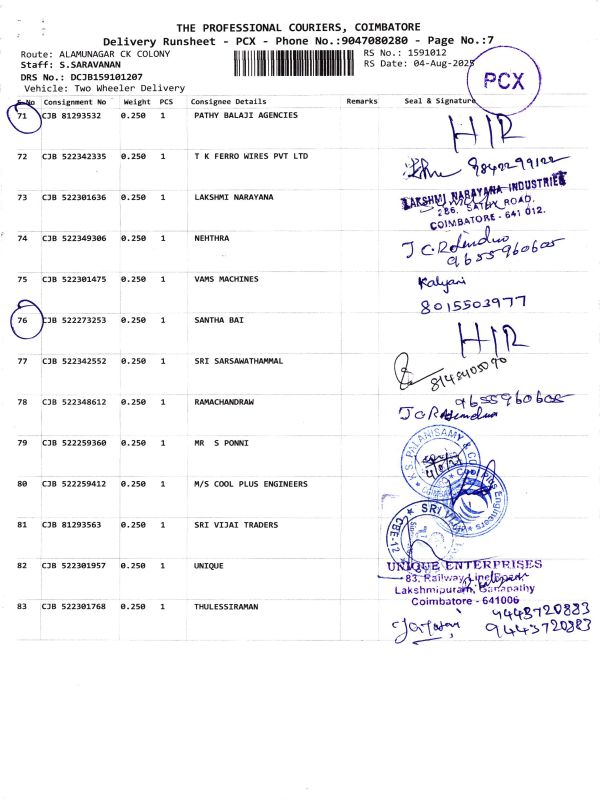 THE PROFESSIONAL COURIERS, COIMBATORE
Delivery Runsheet - PCX - Phone No.:9047080280 - Page No.:7
Route: ALAMUNAGAR CK COLONY RS No.: 1591012
Staff: S.SARAVANAN RS Date: 04-Aug-2025
DRS No.: DCJB159101207
Vehicle: Two Wheeler Delivery
PCX
S.No Consignment No Weight PCS Consignee Details Remarks Seal & Signature
71 CJB 81293532 0.250 1 PATHY BALAJI AGENCIES H/R
72 CJB 522342335 0.250 1 T K FERRO WIRES PVT LTD 9842299122
73 CJB 522301636 0.250 1 LAKSHMI NARAYANA
LAKSHMI NARAYANA INDUSTRIES
286, SATHY ROAD,
COIMBATORE - 641 012.
74 CJB 522349306 0.250 1 NEHTHRA
9655960605
75 CJB 522301475 0.250 1 VAMS MACHINES Kalyani
8015503977
76 CJB 522273253 0.250 1 SANTHA BAI H/R
77 CJB 522342552 0.250 1 SRI SARSAWATHAMMAL 8148405090
78 CJB 522348612 0.250 1 RAMACHANDRAW 9655960605
79 CJB 522259360 0.250 1 MR S PONNI
K.S. PALANISAMY & CO
80 CJB 522259412 0.250 1 M/S COOL PLUS ENGINEERS
Cool Plus Engineers
81 CJB 81293563 0.250 1 SRI VIJAI TRADERS
SRI VIJAI
CBE-12
82 CJB 522301957 0.250 1 UNIQUE
UNIQUE ENTERPRISES
83, Railway Line
Lakshmipuram, Ganapathy
Coimbatore - 641006
83 CJB 522301768 0.250 1 THULESSIRAMAN 9443720883
9443720883